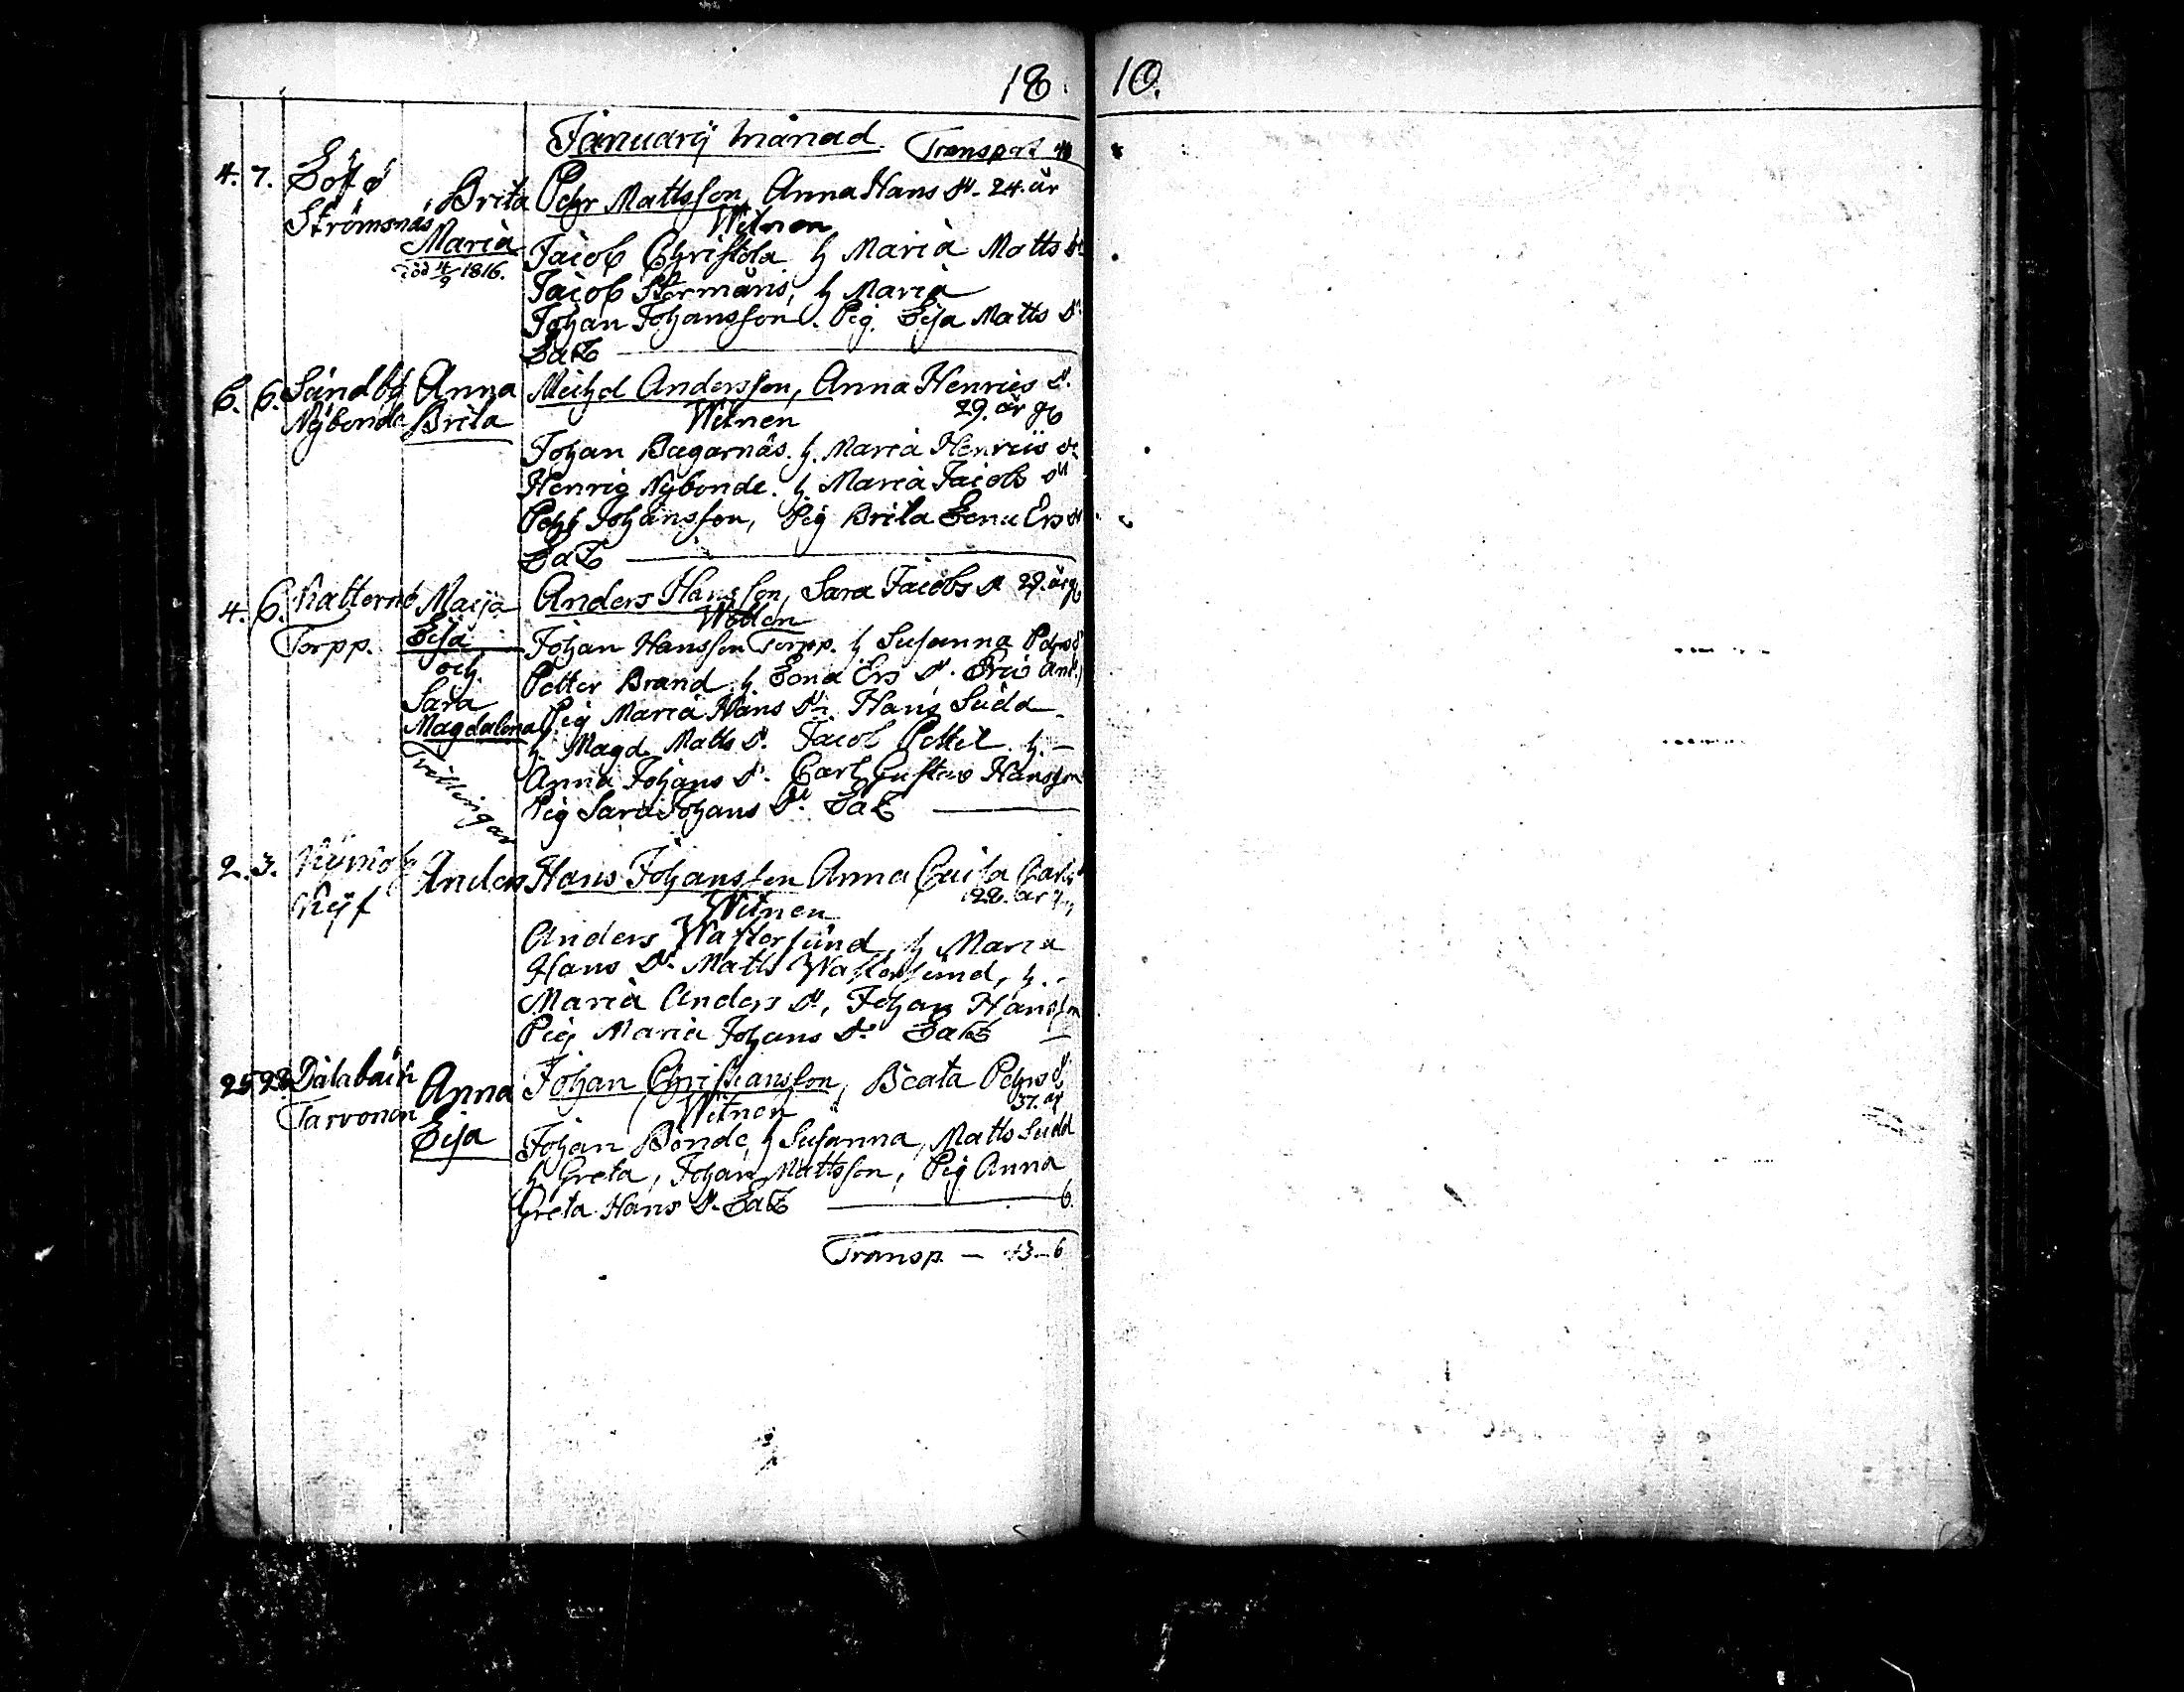 18 10.
Januarij månad. Transport
4. 7. Böttö Brita Pehr Mattsson, Anna Hans dr. 24. år
Strömsnäs Witnen
Maria Jacob Christola h Maria Matts dr
död 4/9 1816. Jacob h Maria
Johan Johansson. Pig. Lisa Matts dr
6. 6. Sundby Anna Michel Andersson, Anna Henrics dr.
Nybonde Brita Witnen 29. år
Johan Bagarnäs. h. Maria Henrics dr
Henrig Nybonde. h. Maria Jacobs dr
Johansson, Pig Brita Lena Ers dr
4. 6. Katternö Maija Anders Hansson, Sara Jacobs dr 29. år
Torpp. Lisa Witnen
Johan Hansson Torpp. h Susanna Pehrs dr
och Petter Brand. h. Lena Ers dr.
Sara Pig Maria Hans dr. Hans Sudd
Magdalena h. Magd. Matts dr. Jacob h.
Anna Johans dr. Carl Gustav Hansson
Tvillingar Pig Sara Johans dr.
2. 3. Anders Hans Johansson Anna Caisa Carls
28. år
Witnen
Anders Wastersund, h Maria
Hans dr. Matts Wastersund, h.
Maria Anders dr, Johan Hansson
Pig Maria Johans dr.
25 Dalabäck Anna Johan Christiansson, Beata Pehrs dr.
Tarvonen Witnen 37. år
Lisa Johan Bonde, h Susanna, Matts Sudd
h Greta, Johan Mattsson, Pig Anna
Greta Hans dr. 6.
Transp. — 13 – 6